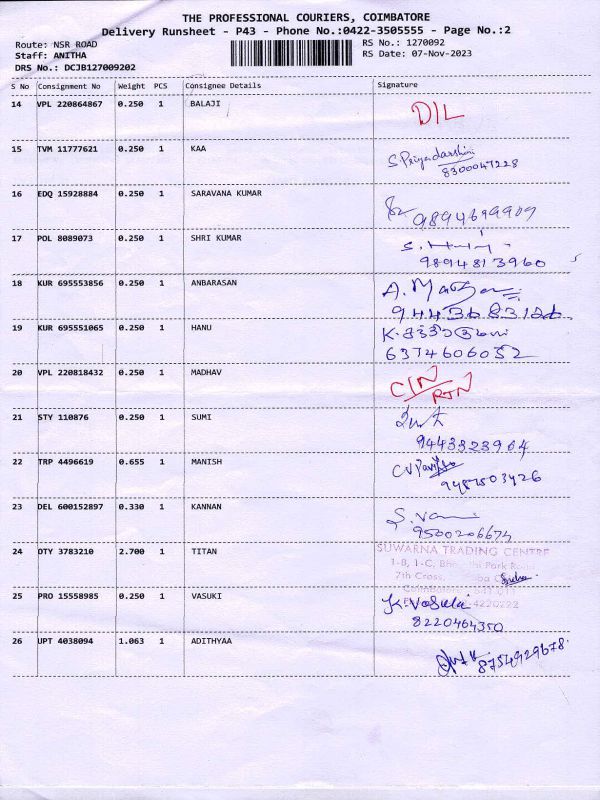 THE PROFESSIONAL COURIERS, COIMBATORE
Delivery Runsheet - P43 - Phone No.:0422-3505555 - Page No.:2
Route: NSR ROAD RS No.: 1270092
Staff: ANITHA RS Date: 07-Nov-2023
DRS No.: DCJB127009202
S No Consignment No Weight PCS Consignee Details Signature
14 VPL 220864867 0.250 1 BALAJI D/L
15 TVM 11777621 0.250 1 KAA S Priyadarshini
8300047228
16 EDQ 15928884 0.250 1 SARAVANA KUMAR
9894699909
17 POL 8089073 0.250 1 SHRI KUMAR
9894813960
18 KUR 695553856 0.250 1 ANBARASAN
19 KUR 695551065 0.250 1 HANU
6374606052
20 VPL 220818432 0.250 1 MADHAV C/N
RTN
21 STY 110876 0.250 1 SUMI
9443323964
22 TRP 4496619 0.655 1 MANISH
9487503426
23 DEL 600152897 0.330 1 KANNAN
9500206674
24 OTY 3783210 2.700 1 TITAN SUWARNA TRADING CENTRE
1-B, 1-C, Park Road
7th Cross,
25 PRO 15558985 0.250 1 VASUKI K Vasuki 4220222
8220464350
26 UPT 4038094 1.063 1 ADITHYAA
8754929678